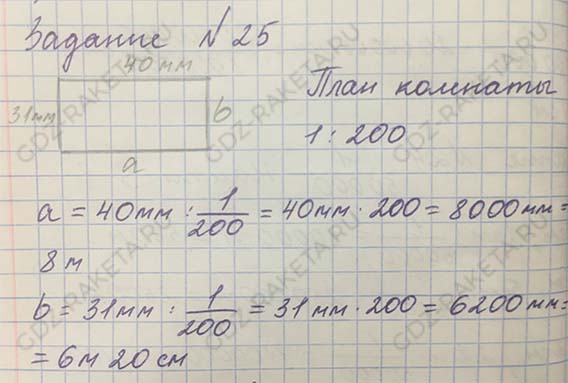 Задание № 25
40 мм
31 мм
b
a
План комнаты
1 : 200
a = 40мм : 1/200 = 40мм · 200 = 8000мм =
8 м
b = 31мм : 1/200 = 31 мм · 200 = 6200мм =
= 6м 20 см
GDZ-RAKETA.RU